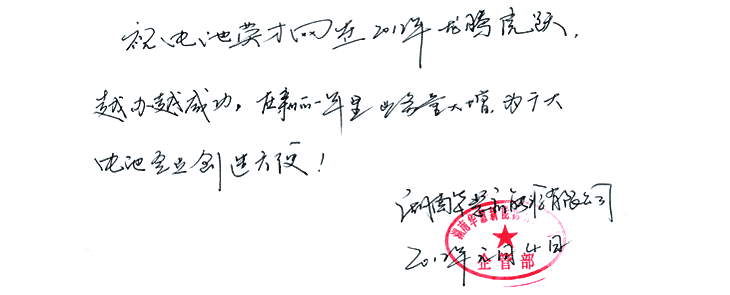 祝电池英才网在2012年龙腾虎跃,
越办越成功。在新的一年里业务量大增,为广大
电池企业创造方便!
湖南华慧新能源有限公司
湖南华慧新能
企管部
2012年元月4日